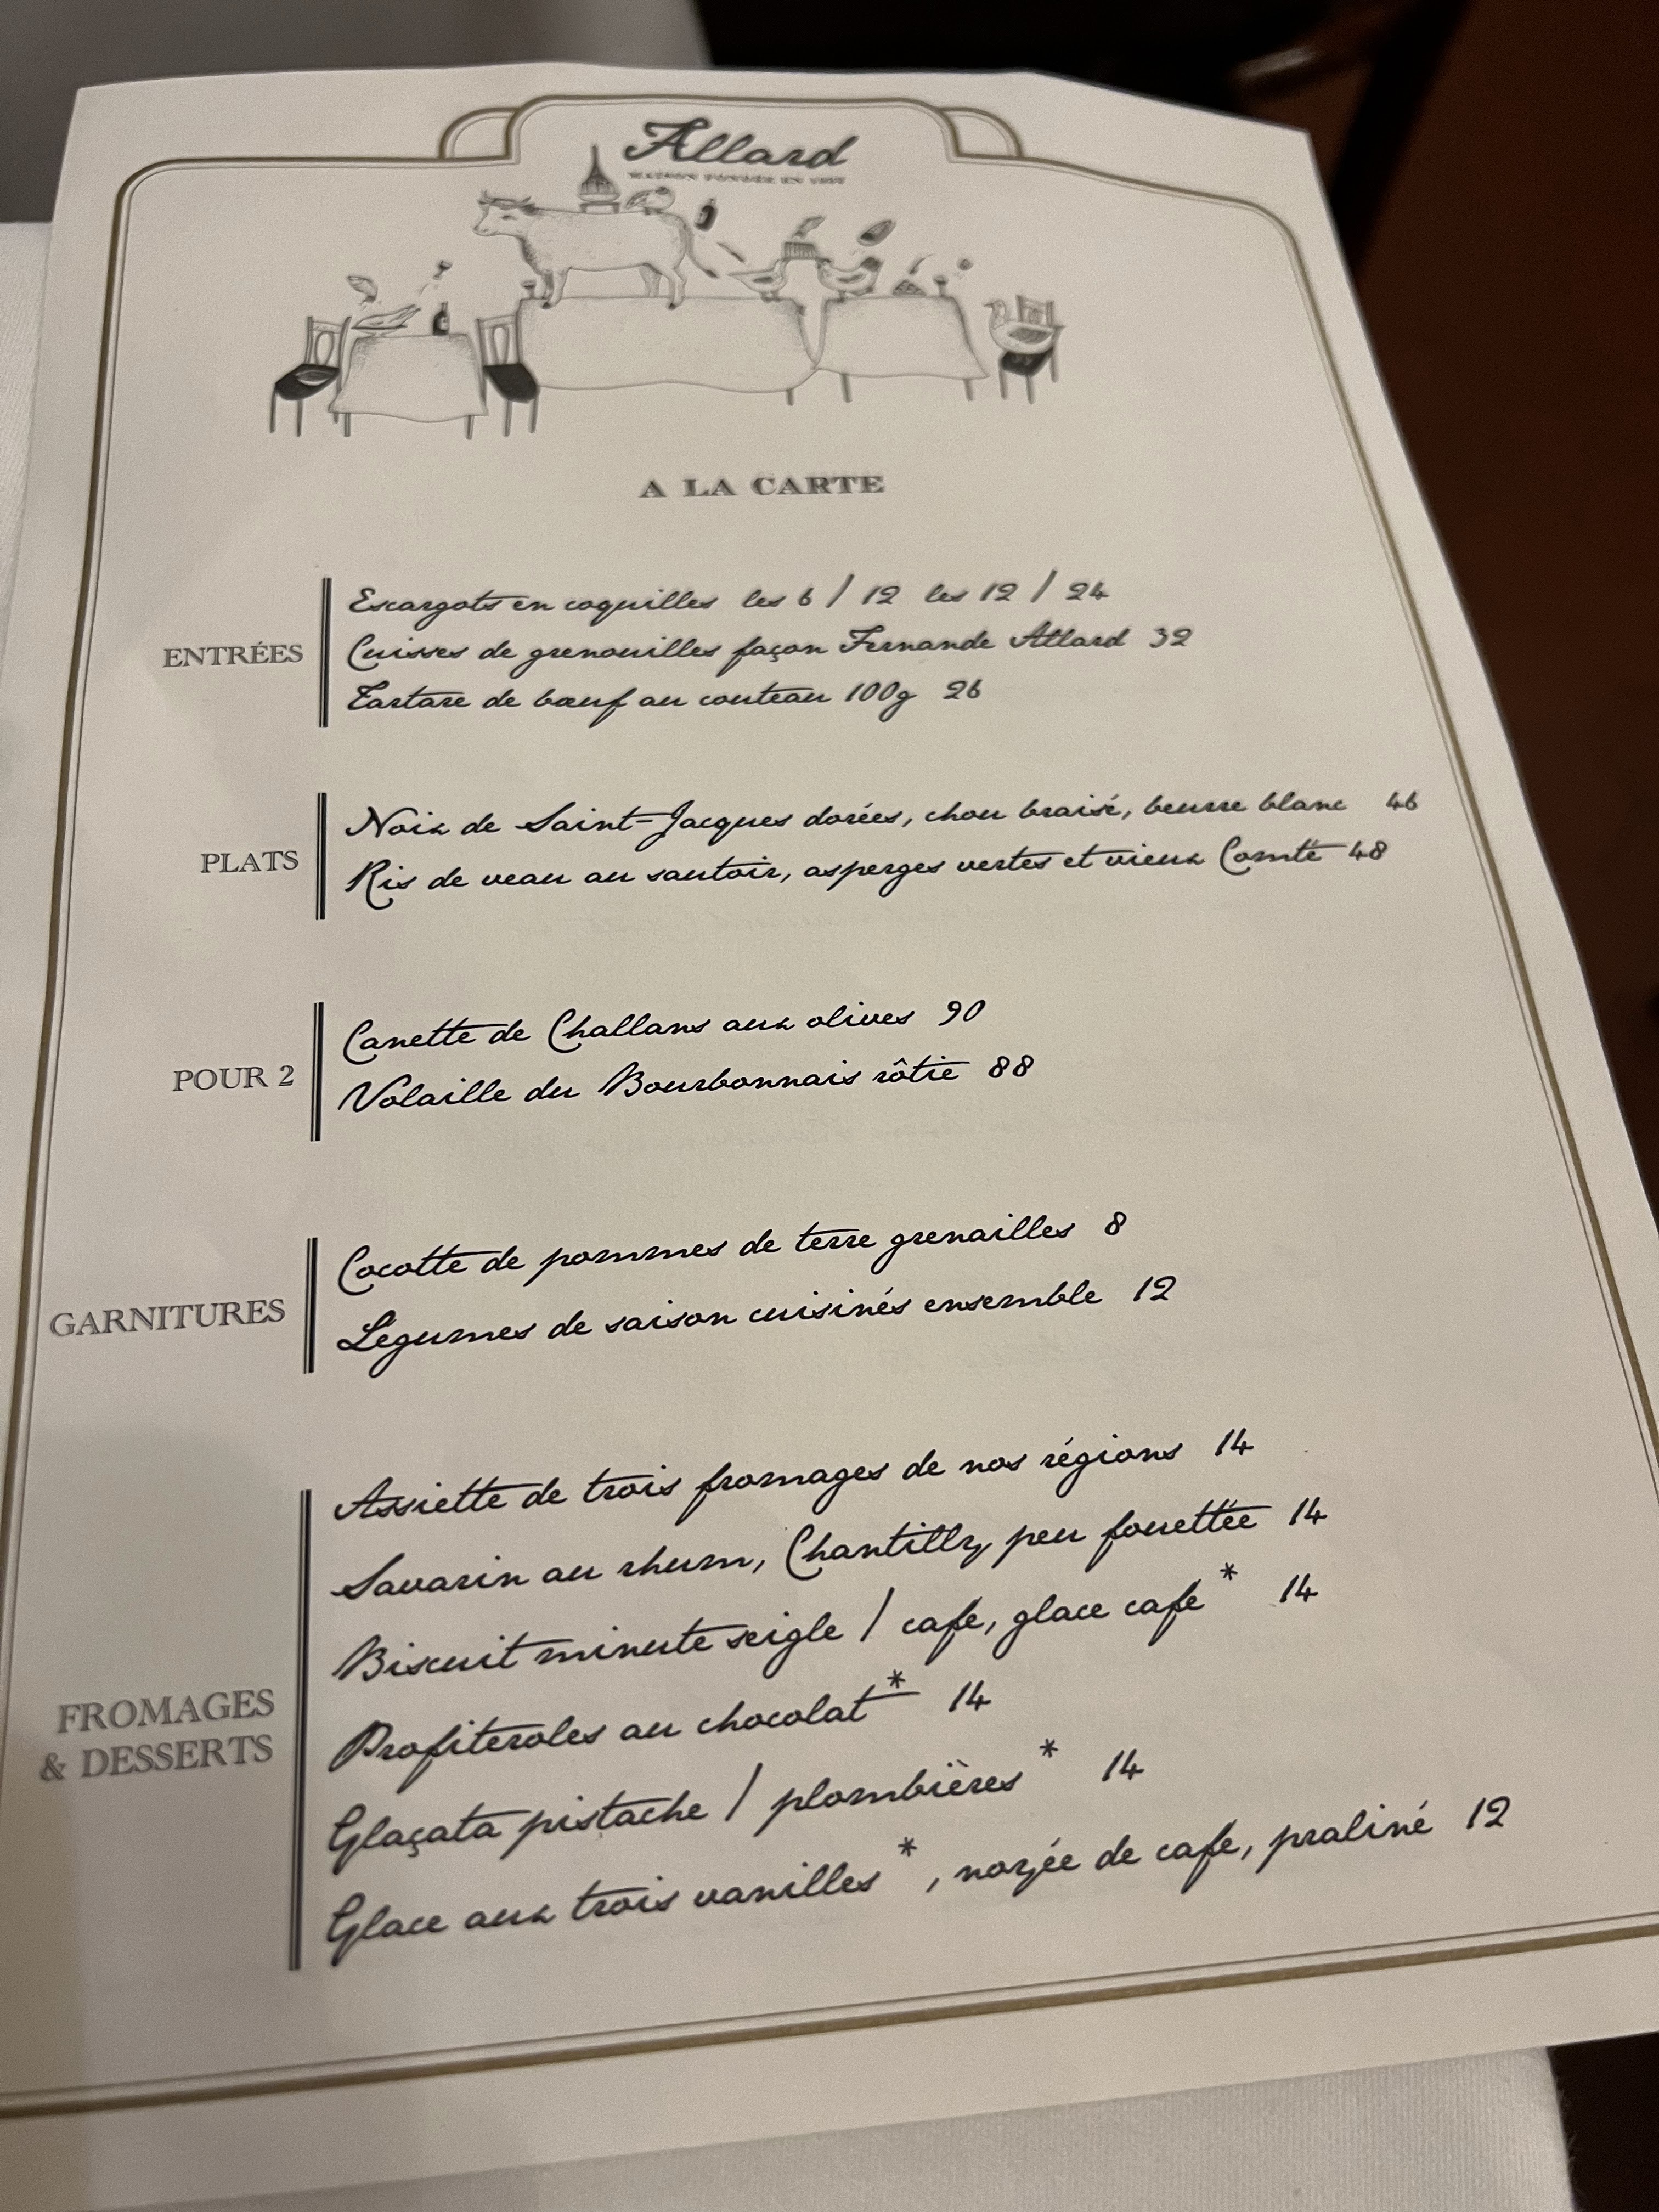 Allard
MAISON FONDÉE EN
A LA CARTE
ENTRÉES
Escargots en coquilles les 6 / 12 les 12 / 24
Cuisses de grenouilles façon Fernande Allard 32
Tartare de bœuf au couteau 100g 26
PLATS
Noix de Saint-Jacques dorées, chou braisé, beurre blanc 46
Ris de veau au sautoir, asperges vertes et vieux Comté 48
POUR 2
Canette de Challans aux olives 90
Volaille du Bourbonnais rôtie 88
GARNITURES
Cocotte de pommes de terre grenailles 8
Légumes de saison cuisinés ensemble 12
FROMAGES
& DESSERTS
Assiette de trois fromages de nos régions 14
Savarin au rhum, Chantilly, peu fouettée 14
Biscuit minute seigle / cafe, glace cafe* 14
Profiteroles au chocolat* 14
Glaçata pistache / plombières* 14
Glace aux trois vanilles*, noyée de cafe, praliné 12